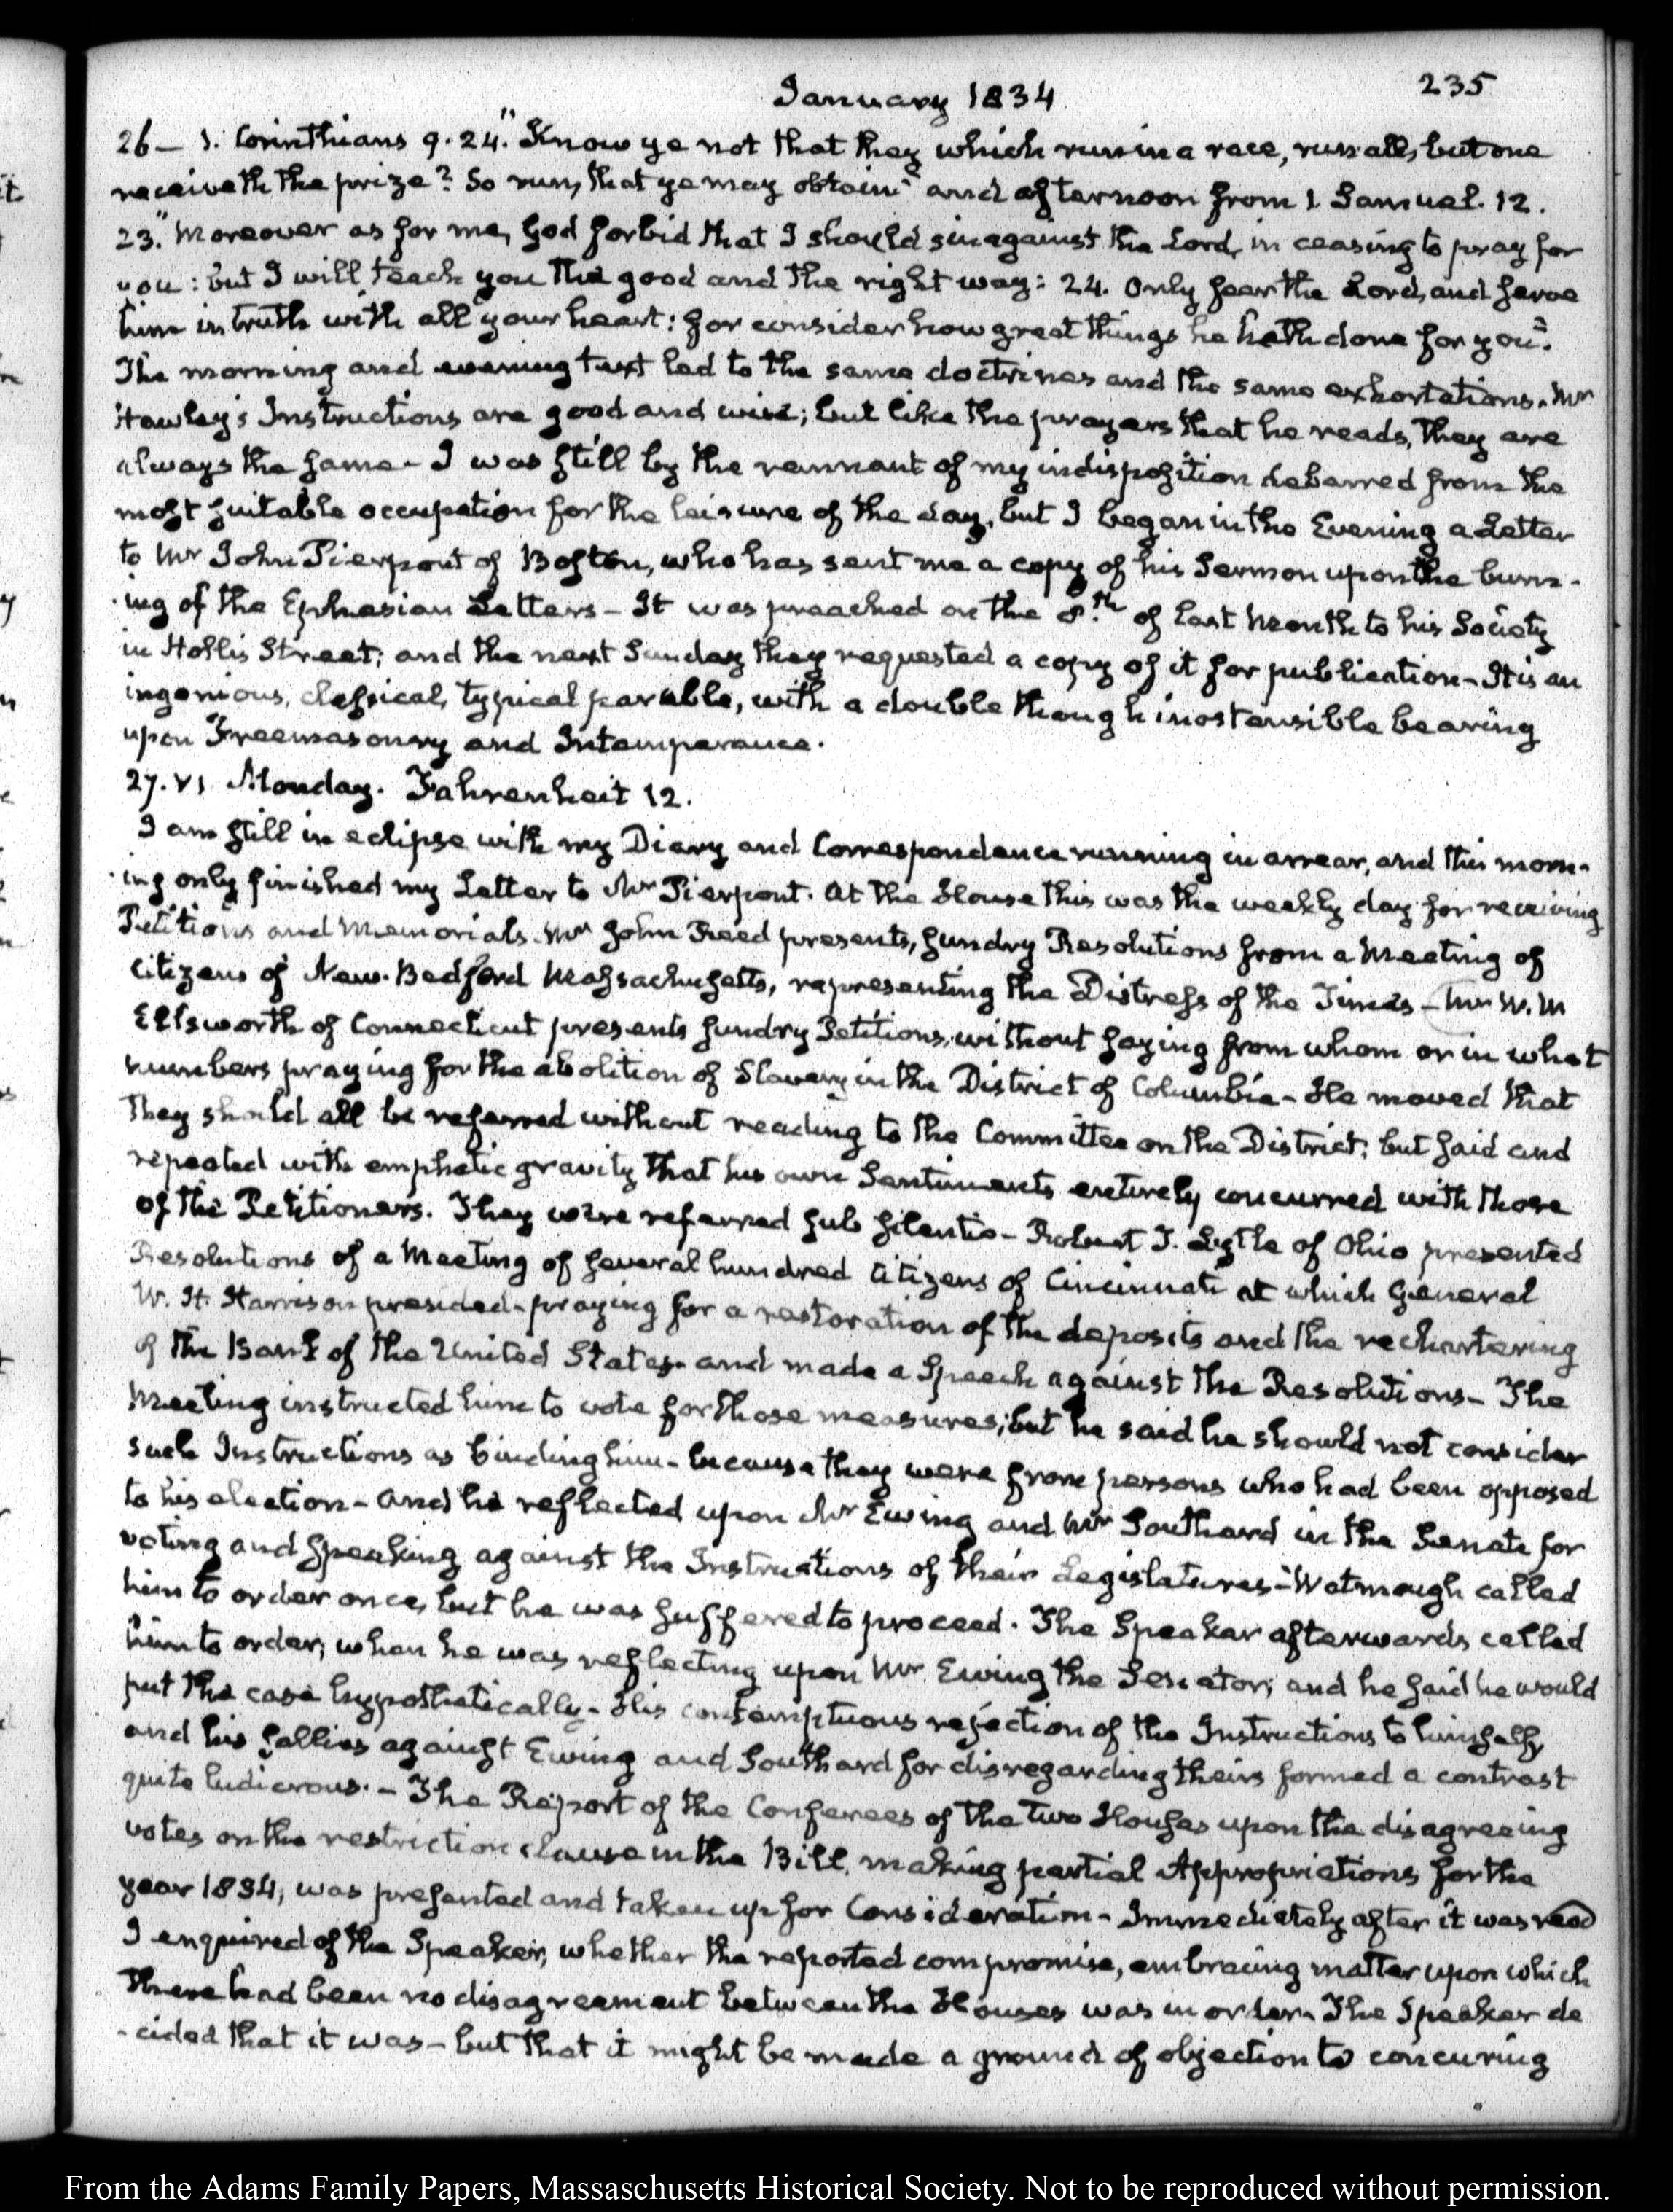 January 1834
235
26 — 1. Corinthians 9. 24. "Know ye not that they which run in a race, run all, but one
receiveth the prize? So run, that ye may obtain" and afternoon from 1 Samuel. 12.
23. "Moreover as for me, God forbid that I should sin against the Lord, in ceasing to pray for
you: but I will teach you the good and the right way: 24. Only fear the Lord, and serve
him in truth with all your heart: for consider how great things he hath done for you."
The morning and evening text led to the same doctrines and the same exhortations. Mr
Hawley's Instructions are good and wise; but like the prayers that he reads, they are
always the same - I was still by the remnant of my indisposition debarred from the
most suitable occupation for the leisure of the day, but I began in the Evening a Letter
to Mr John Pierpont of Boston, who has sent me a copy of his Sermon upon the burn-
-ing of the Ephesian Letters - It was preached on the 8th of last Month to his Society
in Hollis Street; and the next Sunday they requested a copy of it for publication - It is an
ingenious, classical, typical parable, with a double though inostensible bearing
upon Freemasonry and Intemperance.
27. VI. Monday. Fahrenheit 12.
I am still in eclipse with my Diary and Correspondence running in arrear, and this morn-
-ing only finished my Letter to Mr Pierpont. At the House this was the weekly day for receiving
Petitions and Memorials. Mr John Reed presents, sundry Resolutions from a Meeting of
Citizens of New-Bedford Massachusetts, representing the Distress of the Times - Mr W. W
Ellsworth of Connecticut presents sundry Petitions, without saying from whom or in what
numbers praying for the abolition of Slavery in the District of Columbia - He moved that
they should all be referred without reading to the Committee on the District; but said and
repeated with emphatic gravity that his own Sentiments entirely concurred with those
of the Petitioners. They were referred sub silentio - Robert T. Lytle of Ohio presented
Resolutions of a Meeting of several hundred Citizens of Cincinnati at which General
W. H. Harrison presided - praying for a restoration of the deposits and the rechartering
of the Bank of the United States - and made a Speech against the Resolutions - The
Meeting instructed him to vote for those measures; but he said he should not consider
such Instructions as binding him - because they were from persons who had been opposed
to his election - and he reflected upon Mr Ewing and Mr Southard in the Senate for
voting and speaking against the Instructions of their Legislatures - Watmough called
him to order once, but he was suffered to proceed. The Speaker afterwards called
him to order, when he was reflecting upon Mr Ewing the Senator; and he said he would
put the case hypothetically - His contemptuous rejection of the Instructions to himself,
and his sallies against Ewing and Southard for disregarding theirs formed a contrast
quite ludicrous. - The Report of the Conferees of the two Houses upon the disagreeing
votes on the restriction clause in the Bill, making partial Appropriations for the
year 1834, was presented and taken up for Consideration - Immediately after it was read
I enquired of the Speaker, whether the reported compromise, embracing matter upon which
there had been no disagreement between the Houses was in order - The Speaker de
-cided that it was - but that it might be made a ground of objection to concuring
From the Adams Family Papers, Massachusetts Historical Society. Not to be reproduced without permission.